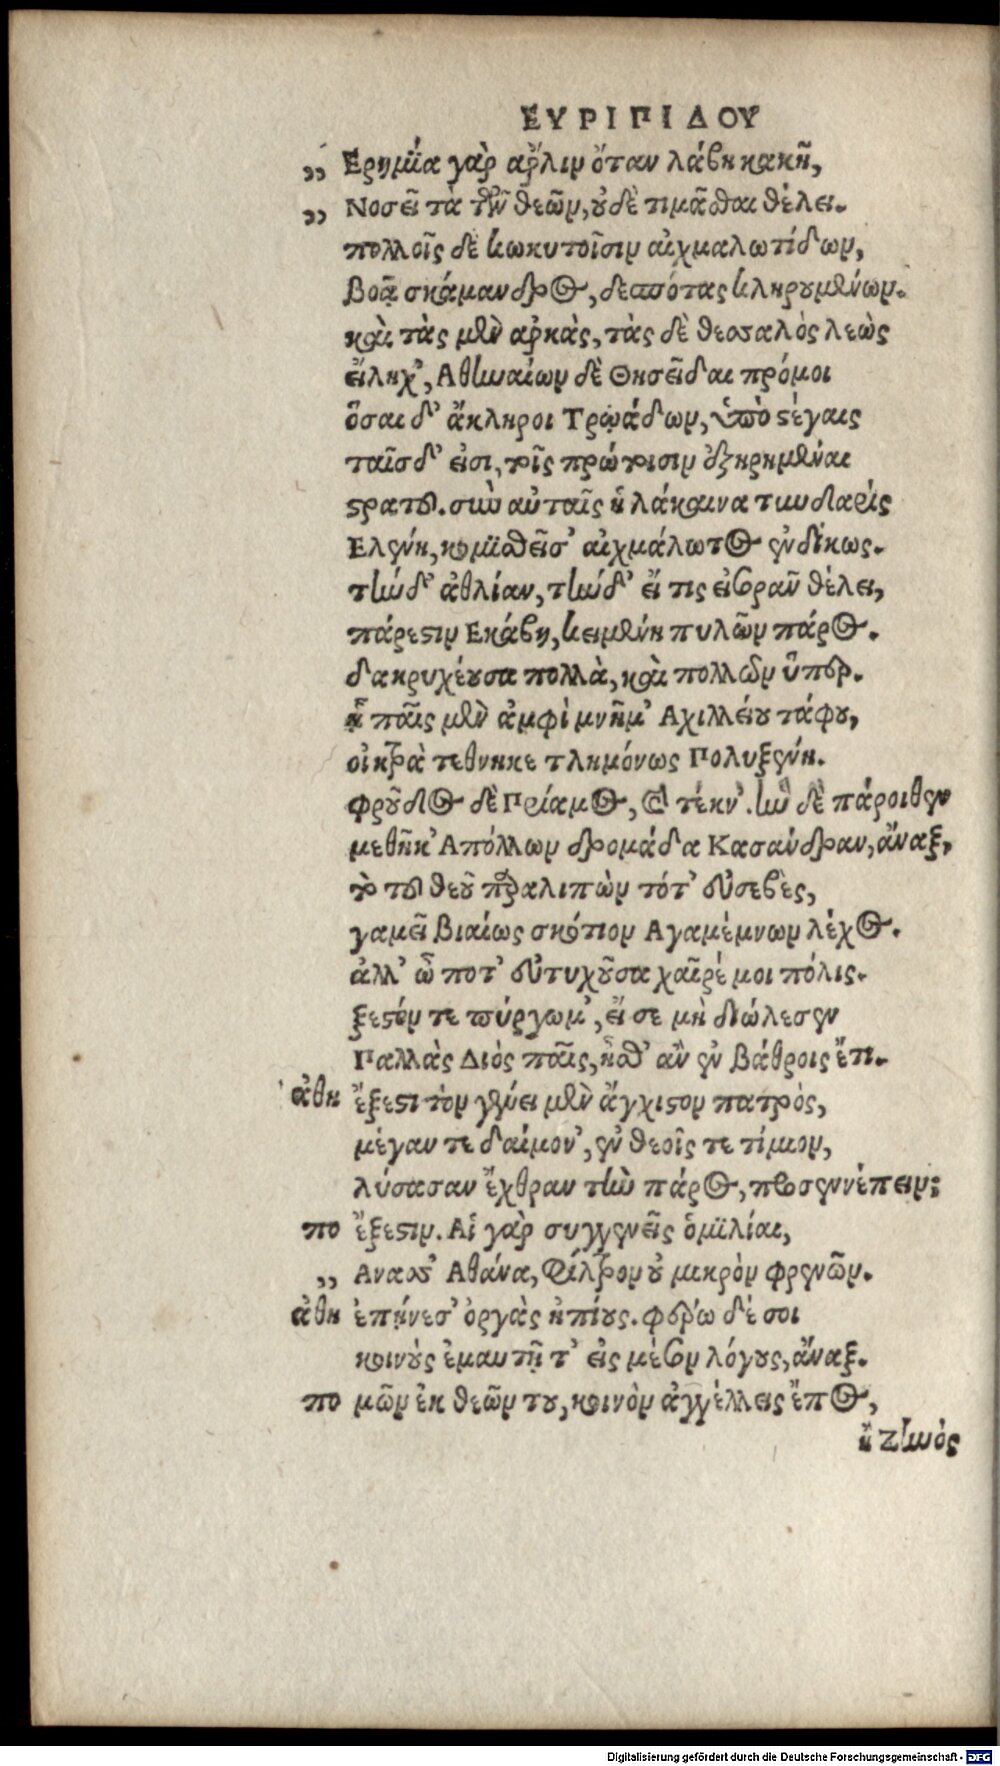 ΕΥΡΙΠΙΔΟΥ
,, Ερημία γὰρ πόλιν ὅταν λάβῃ κακὴ,
,, Νοσεῖ τὰ τῶν θεῶν, οὐδὲ τιμᾶσθαι θέλει.
πολλοῖς δὲ κωκυτοῖσιν αἰχμαλωτίδων,
βοᾷ σκάμανδρος, δεσπότας κληρουμένων.
καὶ τὰς μὲν ἀρκὰς, τὰς δὲ θεσσαλὸς λεὼς
εἴληχ', Αθηναίων δὲ Θησεῖδαι πρόμοι
ὅσαι δ' ἄκληροι Τρῳάδων, ὑπὸ στέγαις
ταῖσδ' εἰσι, τοῖς πρώτοισιν ἐξῃρημέναι
στρατοῦ. σὺν αὐταῖς ἡ λάκαινα τυνδαρὶς
Ελένη, νομισθεῖσ' αἰχμάλωτος ἐνδίκως.
τὴν δ' ἀθλίαν, τήνδ' εἴ τις εἰσορᾶν θέλει,
πάρεστιν Εκάβη, κειμένη πυλῶν πάρος.
δακρυχέουσα πολλὰ, καὶ πολλῶν ὕπερ.
ᾗ παῖς μὲν ἀμφὶ μνῆμ' Αχιλλείου τάφου,
οἰκτρὰ τεθνηκε τλημόνως Πολυξένη.
φροῦδος δὲ Πρίαμος, καὶ τέκν'. ἣν δὲ πάροιθεν
μεθῆκ' Απόλλων δρομάδα Κασάνδραν, ἄναξ,
τὸ τοῦ θεοῦ παραλιπὼν τότ' εὐσεβὲς,
γαμεῖ βιαίως σκότιον Αγαμέμνων λέχος.
ἀλλ' ὦ ποτ' εὐτυχοῦσα χαῖρέ μοι πόλις.
ξεστόν τε πύργωμ', εἴ σε μὴ διώλεσεν
Παλλὰς Διὸς παῖς, ἦσθ' ἂν ἐν βάθροις ἔτι.
ἀθη ἔξεστι τὸν γένει μὲν ἄγχιστον πατρὸς,
μέγαν τε δαίμον', ἐν θεοῖς τε τίμιον,
λύσασαν ἔχθραν τὴν πάρος, προσεννέπειν;
πο ἔξεστιν. Αἱ γὰρ συγγενεῖς ὁμιλίαι,
,, Ανασσ' Αθάνα, Φίλτρον οὐ μικρὸν φρενῶν.
ἀθη ἐπῄνεσ' ὀργὰς ἠπίους. φέρω δέ σοι
κοινοὺς ἐμαυτῇ τ' εἰς μέσον λόγους, ἄναξ.
πο μῶν ἐκ θεῶν του, κοινὸν ἀγγέλλεις ἔπος,
ἢ Ζηνὸς
Digitalisierung gefördert durch die Deutsche Forschungsgemeinschaft - DFG